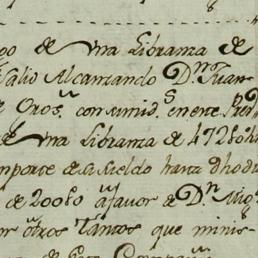 go de vna Libranza de
salio Alcanzando D.n Juan
Oros.n consumid.s en este
de vna Libranza de 4728
importe de su sueldo hasta dho di
de 20080 a favor de D.n Mig.
or otros Tantos que minis-